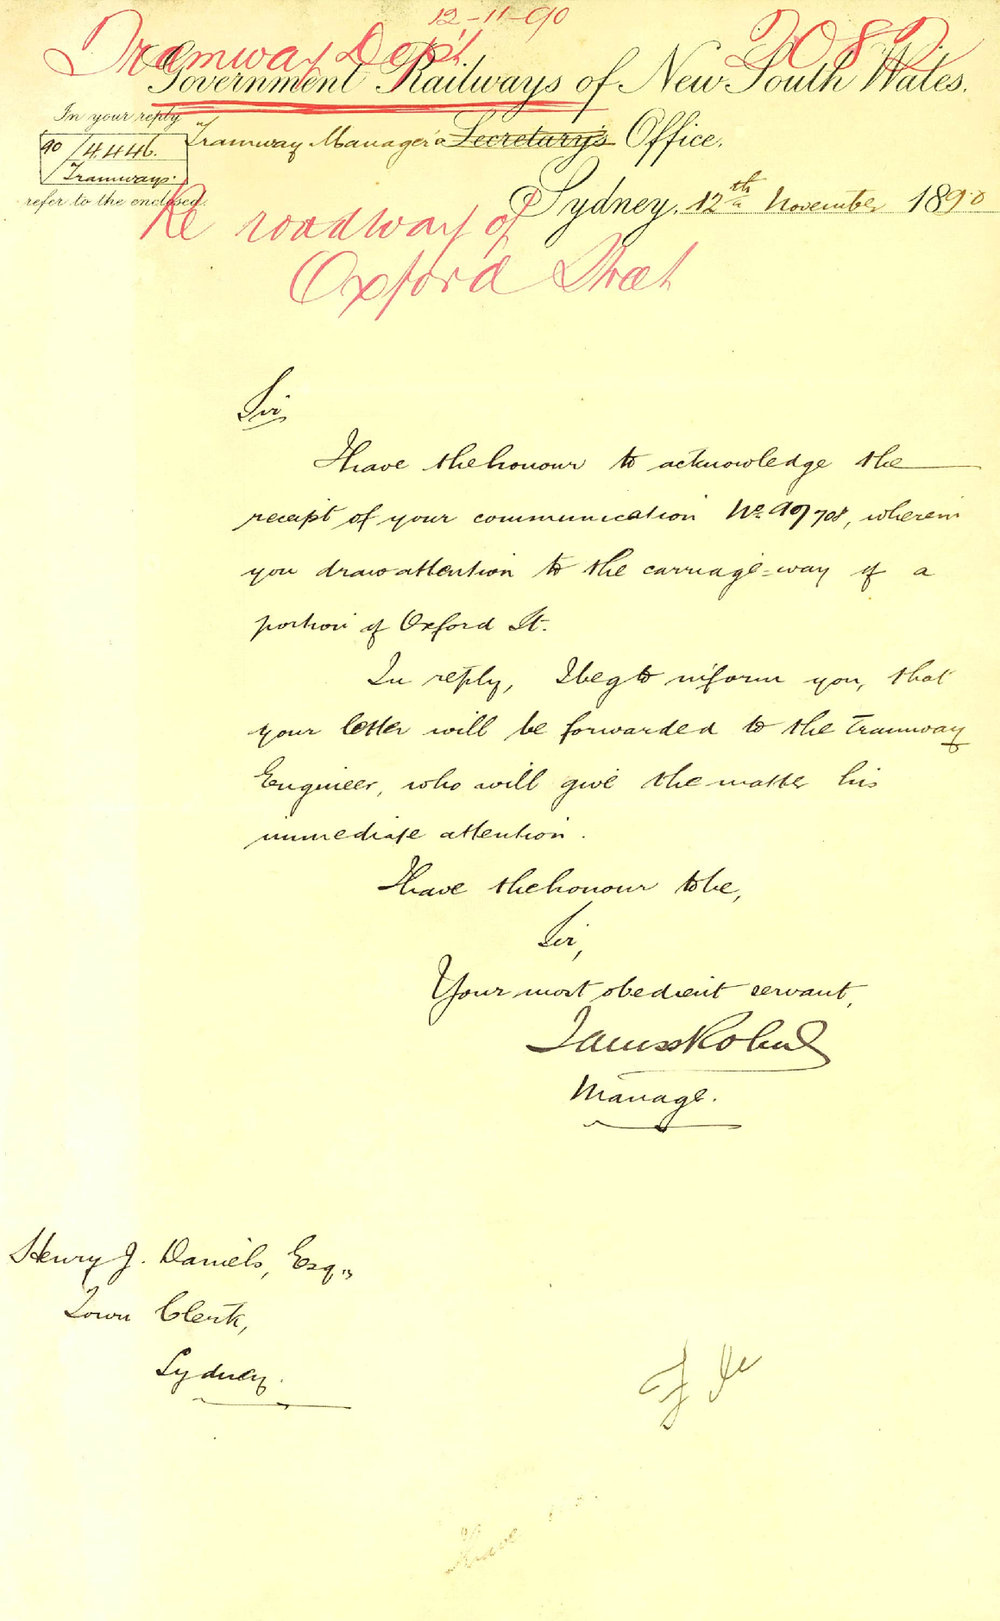 12-11-90
Tramway Dep't 2082
Government Railways of New South Wales.
In your reply
90/4446.
Tramways.
refer to the enclosed.
Tramway Manager's Secretary's Office,
Sydney, 12th November 1890
Re roadway of
Oxford Street
Sir,
I have the honour to acknowledge the
receipt of your communication No. 90/708, wherein
you draw attention to the carriage-way of a
portion of Oxford St.
In reply, I beg to inform you, that
your letter will be forwarded to the Tramway
Engineer, who will give the matter his
immediate attention.
I have the honour to be,
Sir,
Your most obedient servant,
Manager.
Henry J. Daniels, Esq.,
Town Clerk,
Sydney.